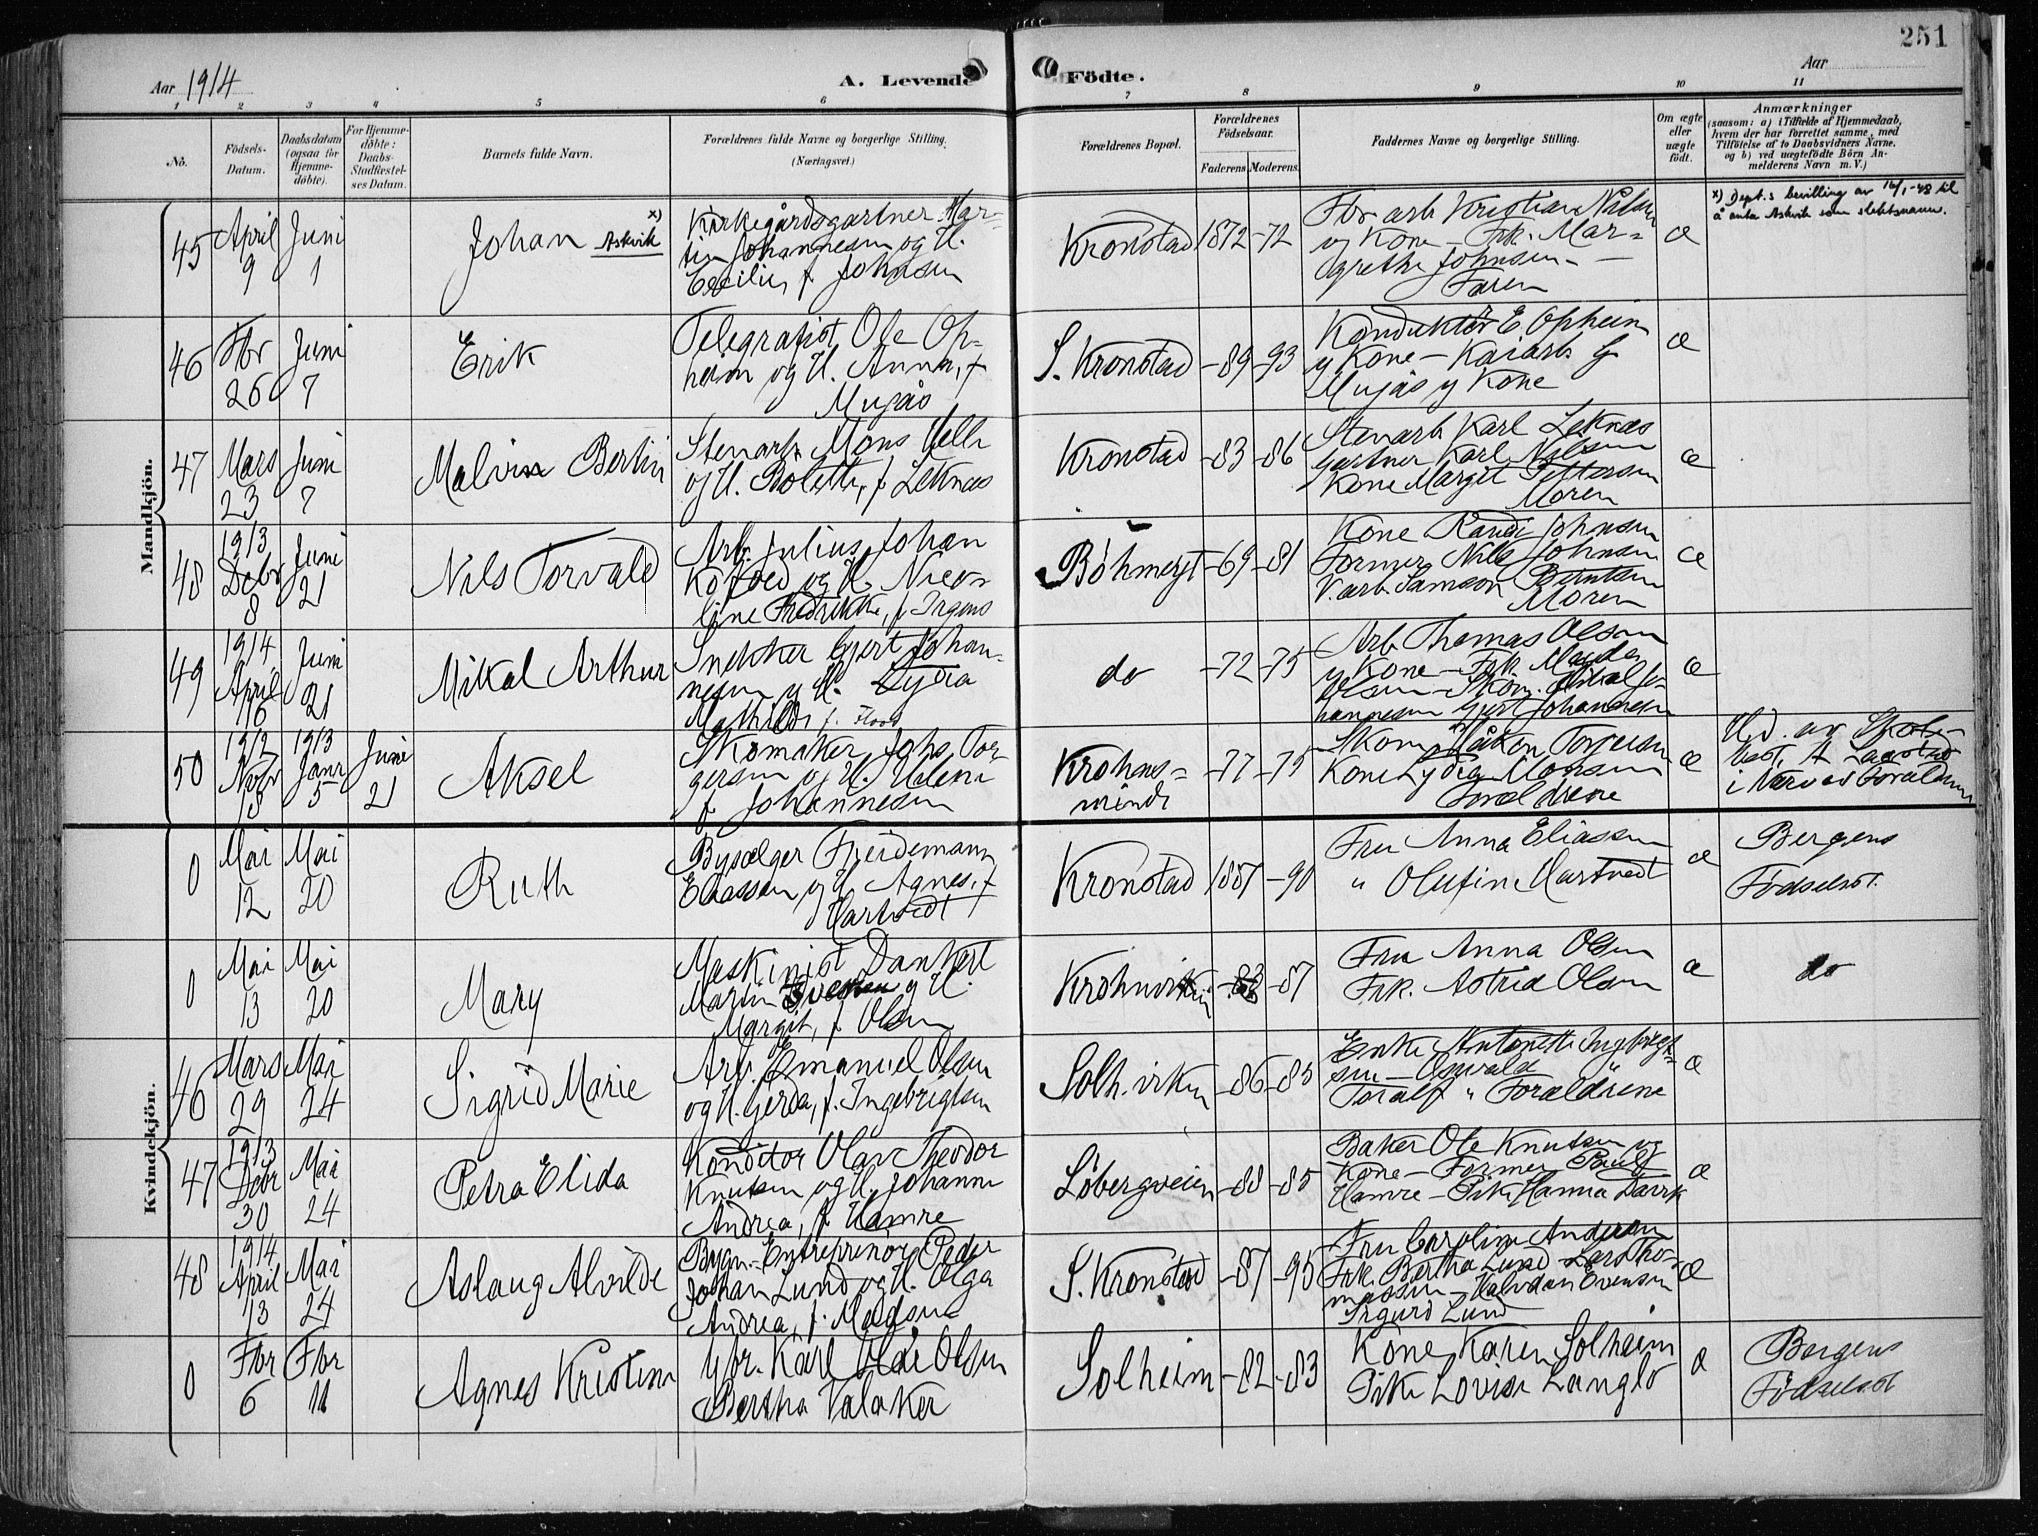 251
Aar 1914
A. Levende Födte.
Aar
1 2 3 4 5 6 7 8 9 10 11
No.
Födsels-Datum.
Daabsdatum (ogsaa for Hjemme-döbte).
For Hjemme-döbte: Daabs-Stadfæstel-ses Datum.
Barnets fulde Navn.
Forældrenes fulde Navne og borgerlige Stilling.
(Næringsvei.)
Forældrenes Bopæl.
Forældrenes Födselsaar.
Faderens. Moderens.
Faddernes Navne og borgerlige Stilling.
Om ægte eller uægte födt.
Anmærkninger
(saasom: a) i Tilfælde af Hjemmedaab,
hvem der har forrettet samme, med
Tilföielse af to Daabsvidners Navne,
og b) ved uægtefödte Börn An-
melderens Navn m. V.)
Mandkjön.
45 April 9 Juni 1 Johan Askvik x)
Kirkegårdsgartner Mar-
tin Johannesen og H.
Cecilie, f. Johnsen
Kronstad 1872 -72
Fbr.arb. Kristian Nilsen
og Kone - Frk. Mar-
grethe Johnsen -
Faren
æ
x) Dept.s bevilling av 16/1-48 til
å anta Askvik som slektsnavn.
46 Fbr 26 Juni 7 Erik
Telegrafist Ole Op-
heim og H. Anna, f.
Mujås
S. Kronstad -89 -93
Konduktör E Opheim
og Kone - Kaiarb. G
Mujås og Kone
æ
47 Mars 23 Juni 7 Malvin Bertin
Stenarb. Mons Helle
og H. Bolette, f. Leknæs
Kronstad -83 -86
Stenarb Karl Leknæs
Gartner Karl Nilsen
Kone Margit Pettersen
Moren
æ
48 1913 Debr 8 Juni 21 Nils Torvald
Arb. Julius Johan
Kofoed og H. Nico-
line Fredrikke, f. Irgens
Böhmergt -69 -81
Kone Randi Johnsen
Former Nils Johnsen
V.arb. Samson Berntsen
Moren
æ
49 1914 April 16 Juni 21 Mikal Arthur
Snekker Gjert Johan-
nesen og H. Lydia
Mathilde f. Flood
do -72 -75
Arb. Thomas Olsen
og Kone - Frk. Magda
Olsen - Skom. Mikal Jo-
hannesen Gjert Johannesen
æ
50 1912 Novbr 13 1913 Janr 5 Juni 21 Aksel
Skomaker Johs. Tor-
gersen og H. Helene
f. Johannesen
Krohns-
minde -77 -75
Skom Håkon Torgersen
Kone Lydia Monsen
Forældrene
æ
i Nærvær Forældrene
Kvindekjön.
0 Mai 12 Mai 20 Ruth
Bysælger Freidemann
Eliassen og H. Agnes, f.
Hartvedt
Kronstad 1887 -90
Fru Anna Eliassen
" Olufin Hartvedt
æ
Bergens
Födselsst.
0 Mai 13 Mai 20 Mary
Maskinist Dankert
Martin og H.
Margit, f. Olsen
Krohnviken -83 -87
Fru Anna Olsen
Frk. Astrid Olsen
æ
do
46 Mars 29 Mai 24 Sigrid Marie
Arb. Emanuel Olsen
og H. Gerda, f. Ingebrigtsen
Solh.viken -86 -85
Enke Antonette Ingebrigt-
sen - Osvald "
Toralf " Forældrene
æ
47 1913 Debr 30 Mai 24 Petra Elida
Konditor Olav Theodor
Knutsen og H. Johanne
Andrea, f. Hamre
Löbergsveien -88 -85
Baker Ole Knutsen og
Kone - Former Paul
Hamre - Pike Hanna Darrk
æ
48 1914 April 13 Mai 24 Aslaug Alvilde
Bygn.-Entreprenör Peder
Johan Lund og H. Olga
Andrea, f. Madsen
S. Kronstad -87 -95
Fru Caroline Andersen
Frk. Bertha Lund - Lars Tho-
massen - Halvdan Evensen
Sigurd Lund
æ
0 Fbr 6 Fbr 11 Agnes Kristine
Gbr. Karl Olai Olsen
Bertha Valaker
Solheim -82 -83
Kone Karen Solheim
Pike Lovise Langlo
æ
Bergens
Födselsst